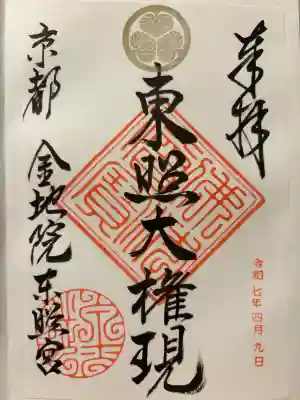 奉拝
令和七年四月九日
東照大権現
京都 金地院東照宮